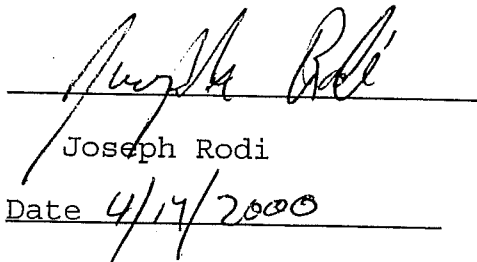 Joseph Rodi
Joseph Rodi
Date 4/17/2000